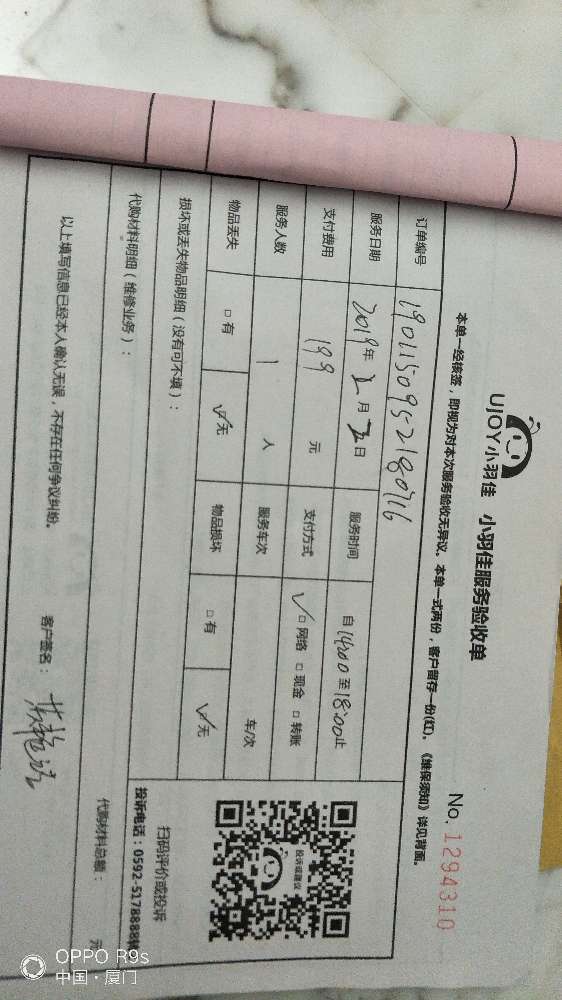 UJOY小羽佳 小羽佳服务验收单
No. 1294310
本单一经核签，即视为对本次服务验收无异议。本单一式两份，客户留存一份(红)。《维保须知》详见背面。
订单编号 190115095-2180716
服务日期 2019年 月 日 服务时间 自14:00至18:00止
支付费用 199 元 支付方式 ✓□网络 □现金 □转账
服务人数 1 人 服务车次 车/次
物品丢失 □有 ☑无 物品损坏 □有 ☑无
损坏或丢失物品明细（没有可不填）：
投诉或建议
扫码评价或投诉
投诉电话：0592-5178888转
代购材料明细（维修业务）：
代购材料总额： 元
以上填写信息已经本人确认无误，不存在任何争议纠纷。
客户签名：
OPPO R9s
中国·厦门